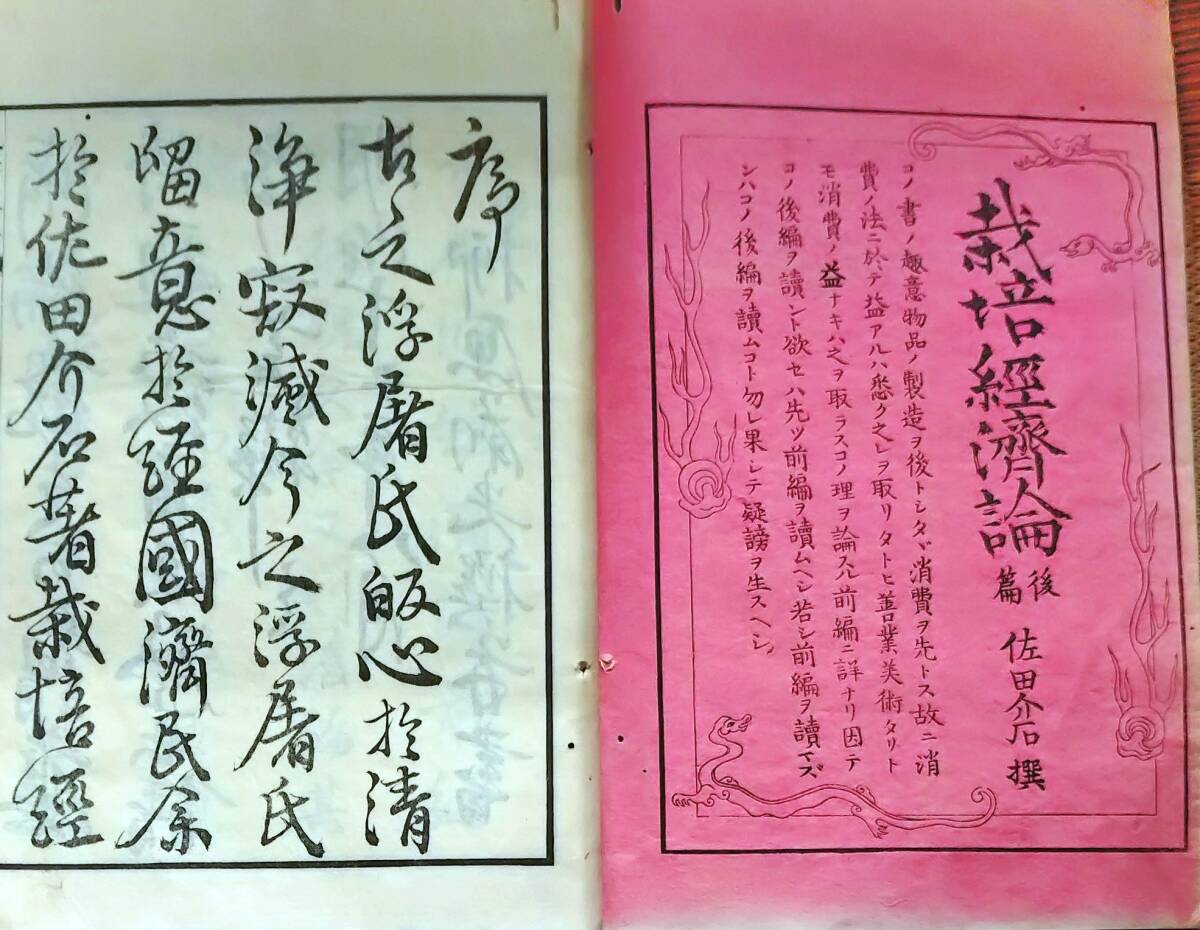 栽培經濟論 後篇 佐田介石 撰
コノ書ノ趣意物品ノ製造ヲ後トシタヾ消費ヲ先トス故ニ消
費ノ法ニ於テ益アルハ悉ク之レヲ取リタトヒ善業美術タリト
モ消費ノ益ナキハ之ヲ取ラスコノ理ヲ論スル前編ニ詳ナリ因テ
コノ後編ヲ讀ント欲セハ先ツ前編ヲ讀ムヘシ若シ前編ヲ讀マズ
ンハコノ後編ヲ讀ムコト勿レ果シテ疑謗ヲ生スヘシ
序
古之浮屠氏皈心於清
淨寂滅今之浮屠氏
留意於經國濟民余
於佐田介石著栽培經